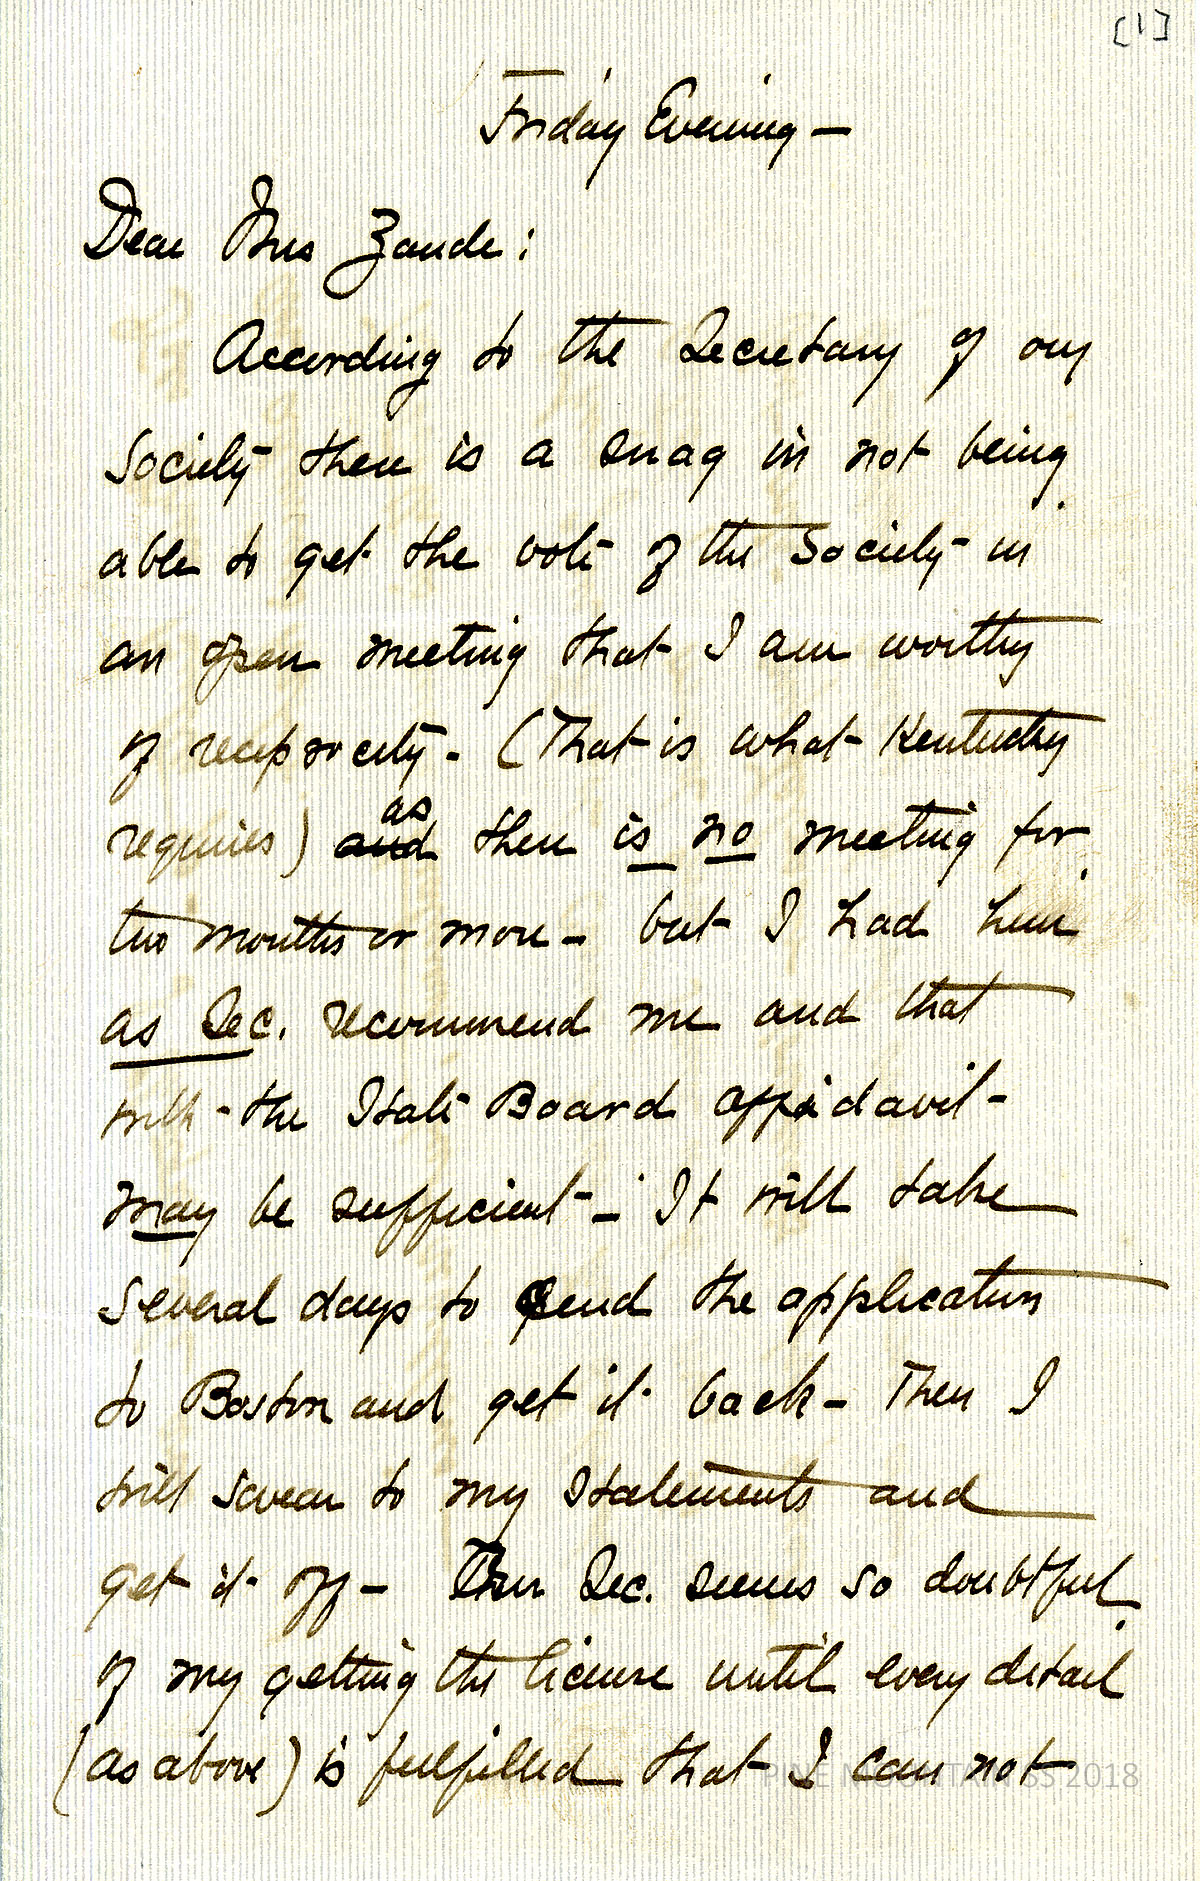 [1]
Friday Evening —
Dear Mrs Zande:
According to the Secretary of our
Society there is a snag in not being
able to get the vote of the Society in
an open meeting that I am worthy
of reciprocity - (That is what Kentucky
as
requires) and there is no meeting for
two months or more - but I had him
as Sec. recommend me and that
with the State Board affidavit -
may be sufficient - It will take
several days to send the application
to Boston and get it back - Then I
will swear to my statements and
get it off - The Sec. seems so doubtful
of my getting the license until every detail
(as above) is fulfilled that I can not
PINE MOUNTAIN SS 2018